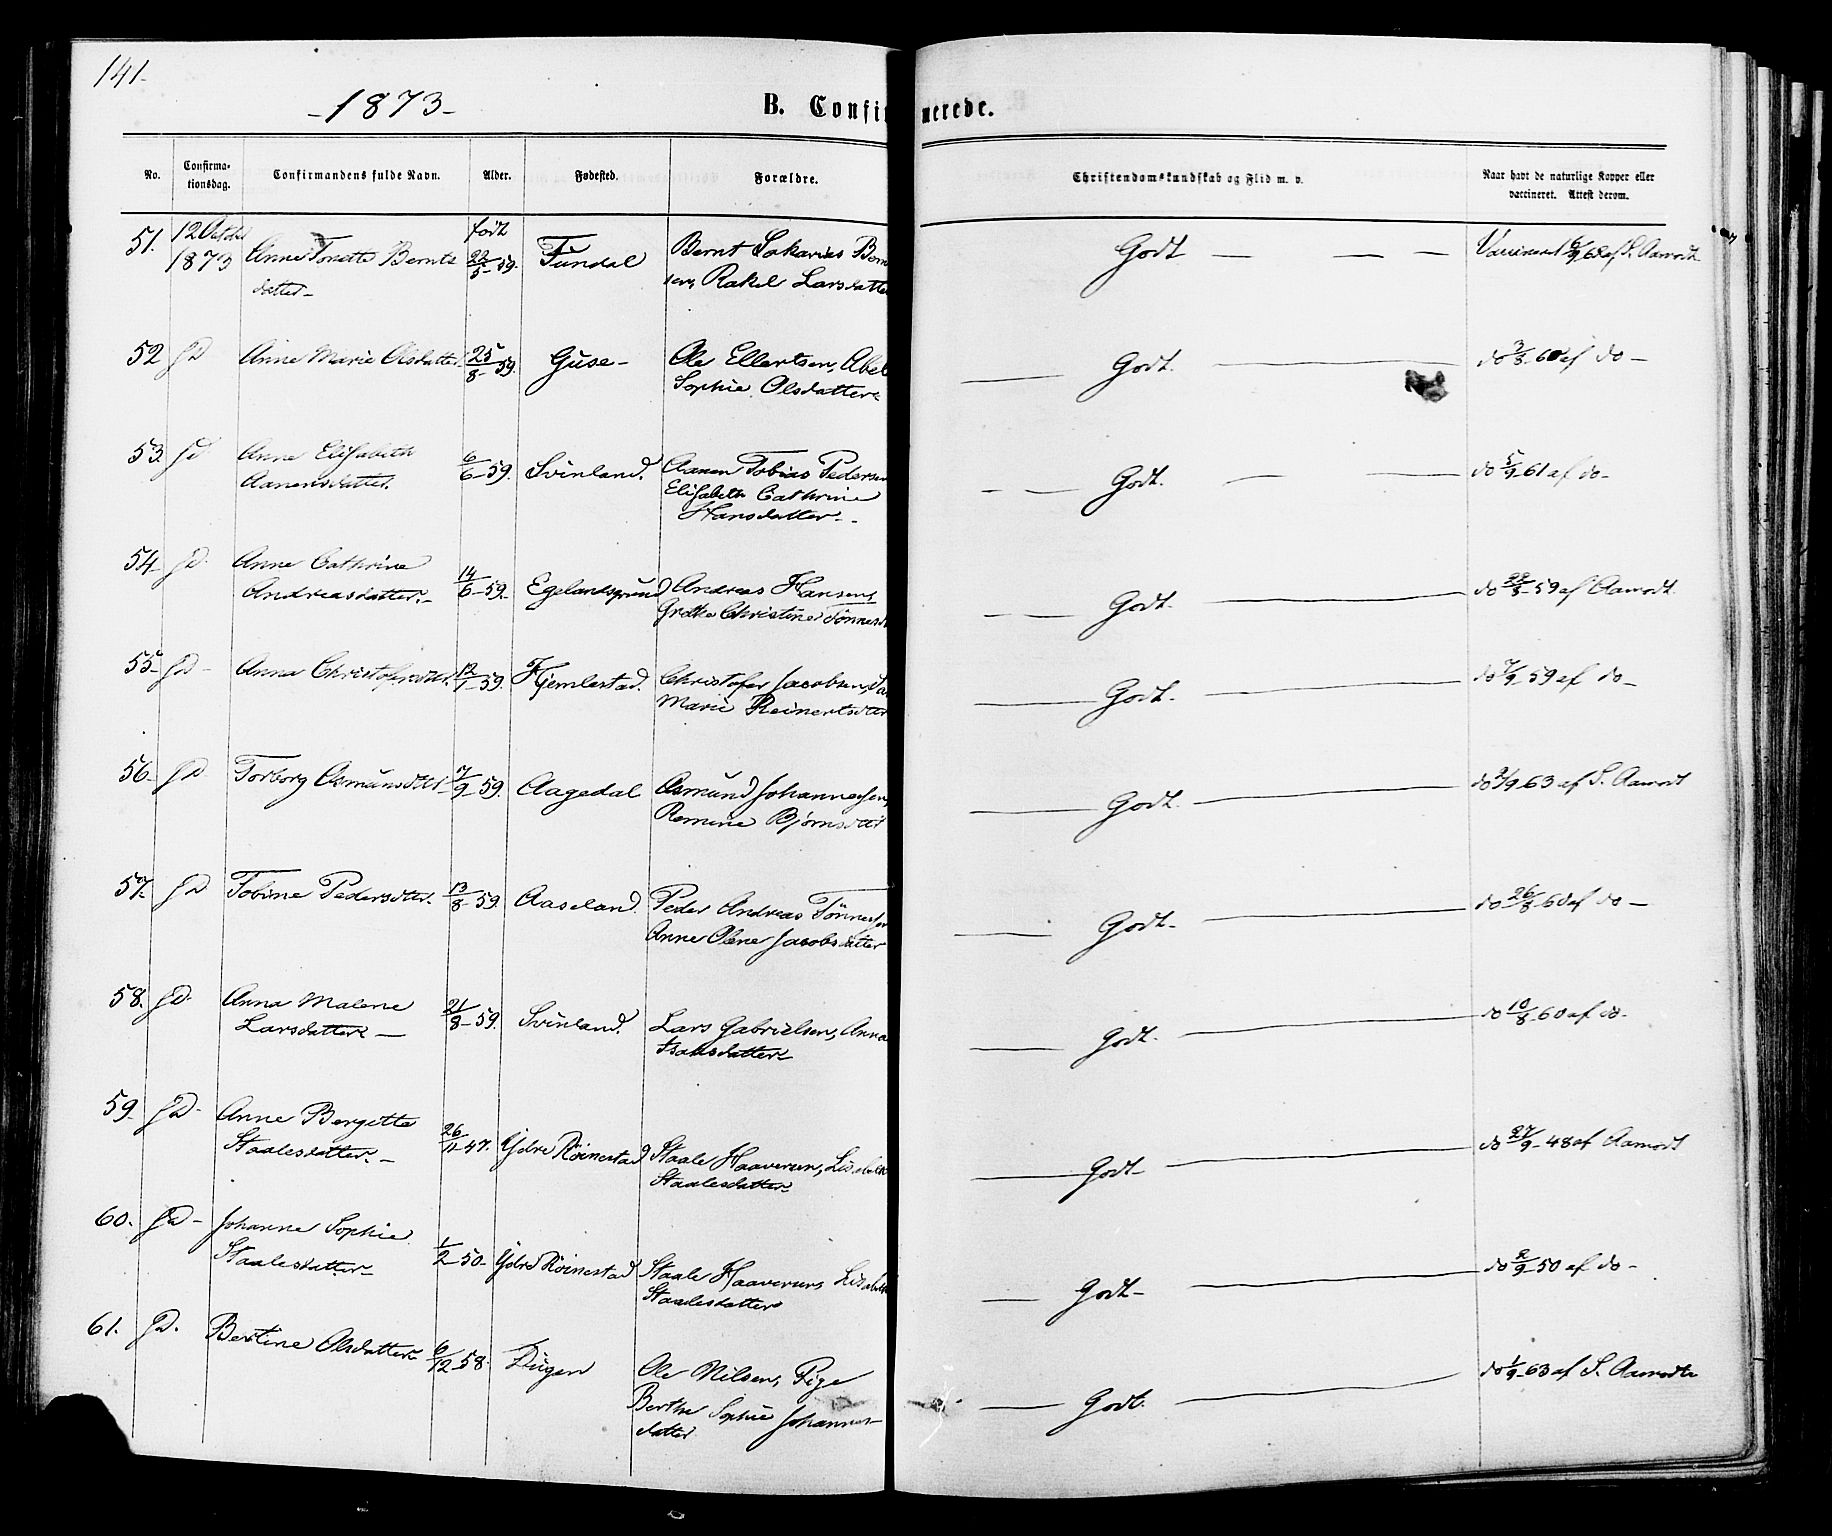 141-
-1873-
B. Confirmerede.
No.
Confirma-
tionsdag.
Confirmandens fulde Navn.
Alder.
Fødested.
Forældre.
Christendomskundskab og Flid m. v.
Naar havt de naturlige Kopper eller
vaccineret. Attest derom.
51. 12 October født
1873 Anne Tonette Bernts 22/5 59. Fundal Bernt Sakarias Bern
datter- sen, Rakel Larsdatter
Godt — — — Vaccineret 6/9 62 af S. Aamodt
52 gD Anne Marie Olsdatter 25/8-59. Guse- Ole Ellertsen, Abel
Sophie Olsdatter
Godt. do 3/8-60 af do-
53. gD Anne Elisabeth 6/6-59. Svinland. Aanen Tobias Pedersen
Aanensdatter. Elisabeth Cathrine
Hansdatter-
Godt. do 5/9-61 af do-
54. gD. Anne Cathrine 14/6-59. Egelandsgrund Andreas Hansen,
Andreasdatter- Grethe Christine Tønnesd
Godt. do 22/8-59 af Aamodt
55- gD- Anna Christofersdtt. 12/1-59. Hjemlestad. Christofer Jacobsen,
Marie Reinertsdttr
Godt. do 7/9-59 af do-
56- gD Torborg Osmundsdttr 7/9-59. Aagedal Osmund Johannesen,
Remine Bjørnsdttr
Godt. do 3/9 63 af S. Aamodt
57. gD Tobine Pedersdttr. 13/8-59. Aaseland. Peder Andreas Tønnesen
Anne Olene Jacobsdatter
Godt- do 26/8 60 af do-
58. gD. Anna Malene 21/8-59. Svinland. Lars Gabrielsen, Anna
Larsdatter- Isaksdatter-
Godt. do 10/8-60 af do-
59. gD- Anne Bergitte 26/11-47. Ydre Røinestad Staale Haaversen, Lisabeth
Staalesdatter- Staalesdatter
Godt- do 27/9-48 af Aamodt
60. gD- Johanne Sophie 1/2-50- Ydre Røinestad Staale Haaversen, Lisabeth
Staalesdatter- Staalesdatter
Godt- do 2/9-50 af do-
61. gD. Bertine Olsdatter 6/12-58. Ole Nilsen,
Berthe Sophie Johannes-
datter
Godt. do 1/9-63 af S. Aamodt